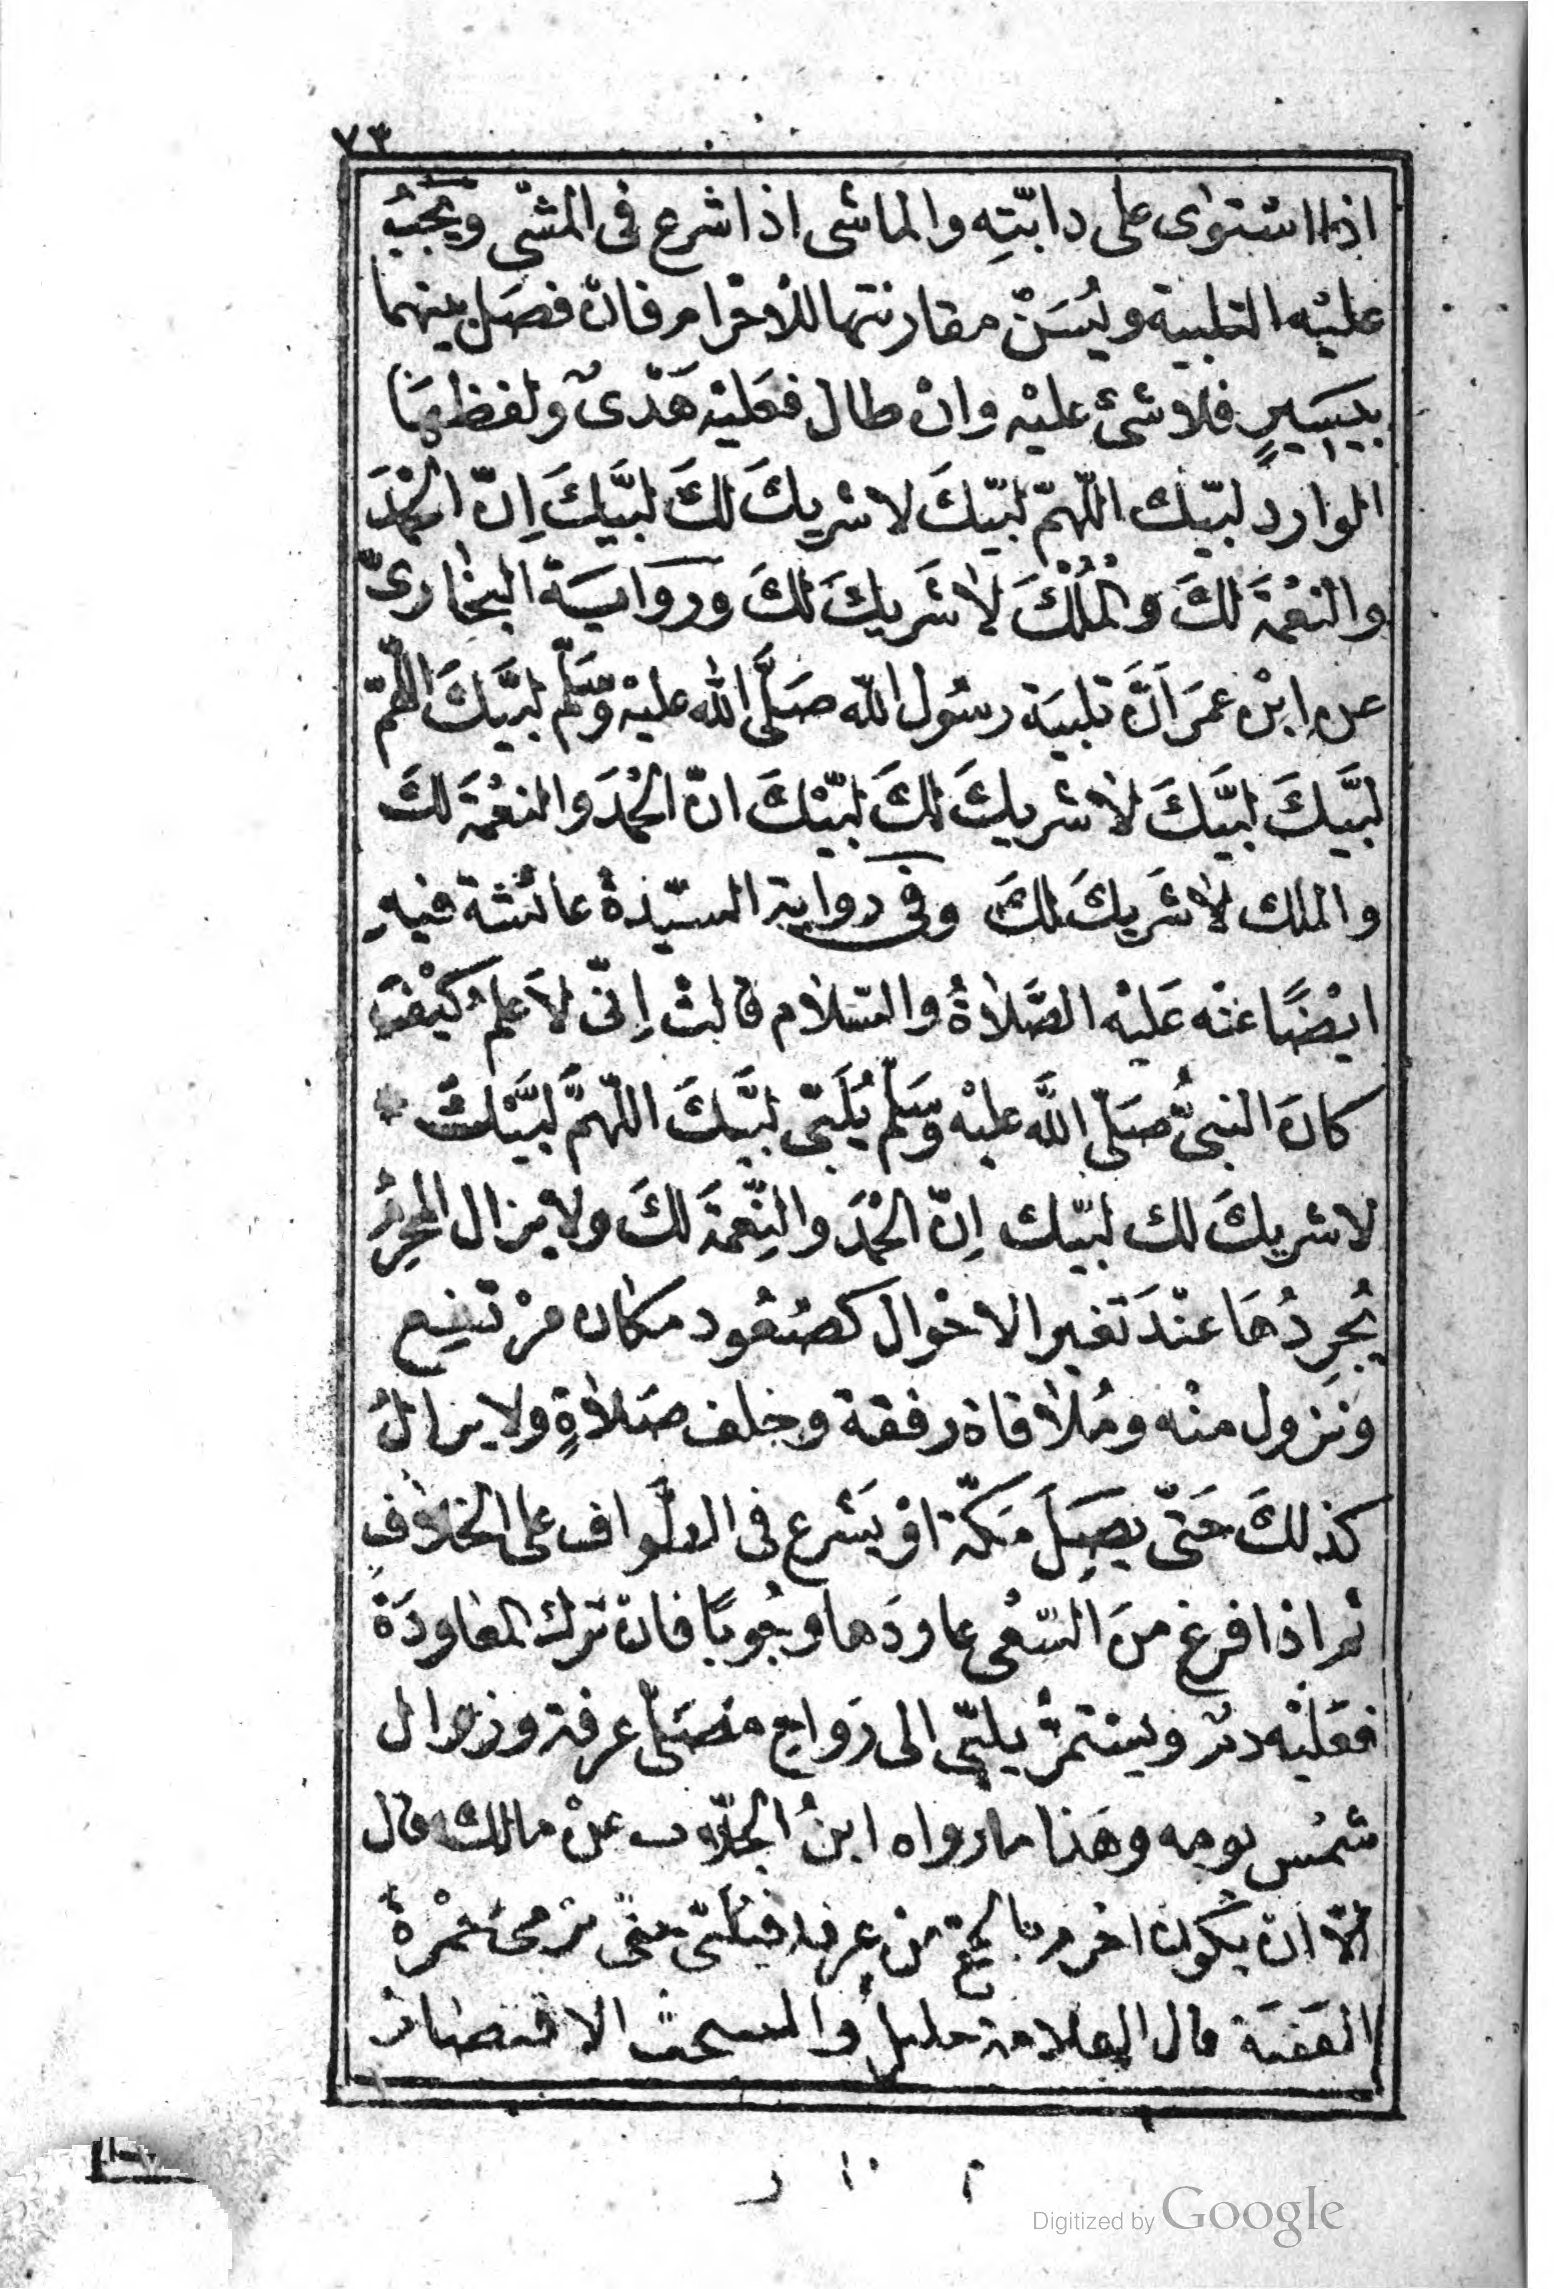 ٧٣
اذا استوٰى على دابّتِه والماشى اذا شرع فى المشْى ويَجبُ
عليْه التلبية ويُسَنّ مقارنتها للاحْرام فانْ فصَل بينهما
بيَسِيرٍ فلا شئ عليْه وانْ طال فعَليْه هَدْىٌ ولفظهَا
الوارد لبّيك اللّهمّ لبّيكَ لا شريكَ لكَ لبَّيكَ اِنّ الحمْدَ
والنعْمَةَ لكَ والمُلْكَ لاٰ شَريكَ لكَ وروَايَة البخٰارىّ
عن ابْن عمَرَ اَنَّ تلبيَة رسُول اللّه صَلَّى اللّٰه عليْه وَسَلّم لبَّيكَ اللّهمّ
لبَّيكَ لبَّيكَ لاٰ شريكَ لكَ لبّيْكَ انّ الحْمدَ والنعْمَةَ لكَ
والملك لاٰ شَريكَ لكَ وفى رواية السيّدةُ عائشة فيهِ
ايضًا عنْه عَليْه الصَّلاٰةُ والسّلاٰم قالتْ اِنّى لاَعلمُ كيْفَ
كانَ النبىُّ صَلّى اللَّه عليْه وَسَلّم يُلَبّى لبَّيكَ اللّهمَّ لبَّيْكَ *
لا شريكَ لك لبّيك اِنّ الحْمَد والنِّعمَةَ لكَ ولا يزال المحْرِمُ
يُجرِدُهَا عنْدَ تغير الاحْوال كصُعُود مكان مرْتفِع
ونزول منْه ومُلاٰقاة رفقة وخلف صَلاٰةٍ ولا يزالُ
كذلكَ حَتّى يصِلَ مَكّة اوْ يَشرع فى الطَّواف على الخلاٰفِ
ثم اذا فرغ منَ السّعْى عاودَها وجُوبًا فان ترك المعٰاودَة
فعَليْه دمٌ ويسْتمرُّ يلبّى الى رَواح مصَلّى عرفة وزوال
شمْس يومه وهَذا ما رواه ابنُ الجلّاب عنْ مالك قال
الّا ان يكون احْرم بالحجّ من عرفة فيُلبّى حتّى يرْمى جَمْرةُ
العقبَة قال العلامة خليل والمستحبّ الاقتصار
م ١٠ ر
Digitized by Google